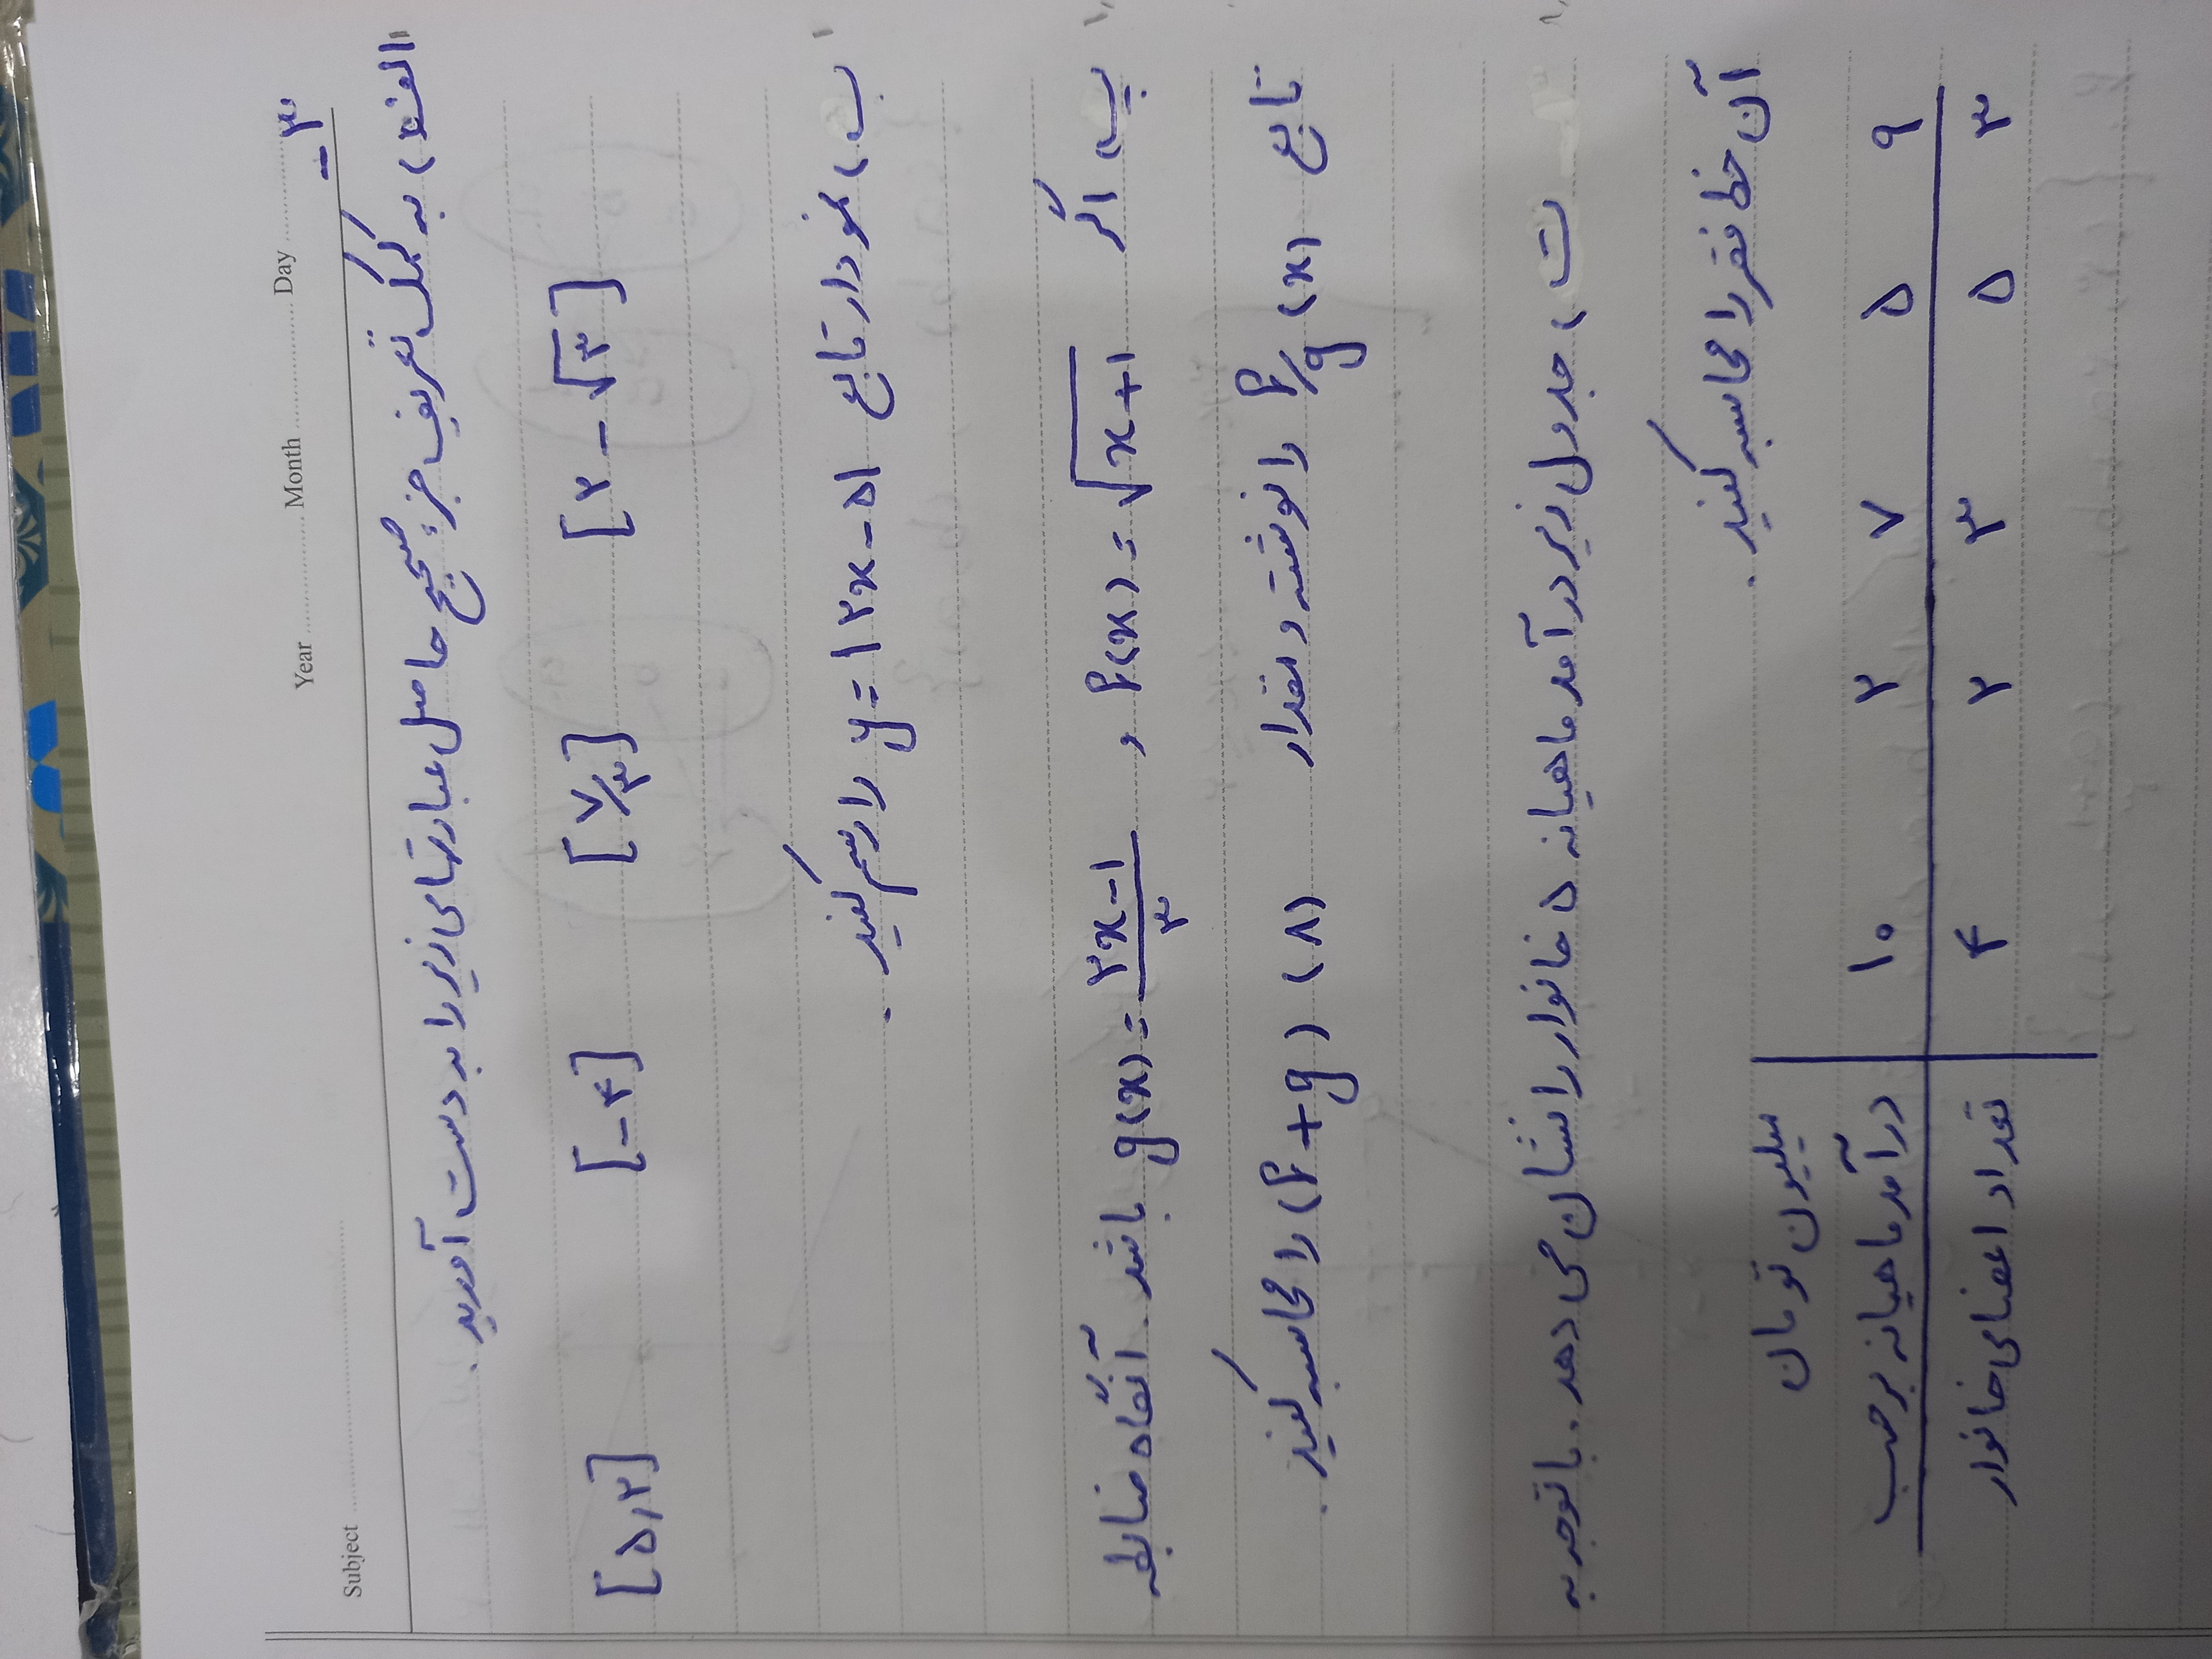 Year ........ Month ........ Day ........
۳_
Subject ........
الف) به کمک تعریف جزء صحیح حاصل عبارتهای زیر را به دست آورید.
[۲ - √۳] [۷/۳] [-۴] [۵,۲]
ب) نمودار تابع y = |۲x - ۵| را رسم کنید.
پ) اگر f(x) = √x+1 و g(x) = ۲x-1/۳ باشد. آنگاه ضابطه
تابع f/g (x) را نوشته و مقدار (f+g) (۸) را محاسبه کنید.
ت) جدول زیر درآمد ماهیانه ۵ خانوار را نشان می دهد. با توجه به
آن خط فقر را محاسبه کنید.
میلیون تومان
درآمد ماهیانه بر حسب ۱۰ ۲ ۷ ۵ ۹
تعداد اعضای خانوار ۴ ۲ ۳ ۵ ۳